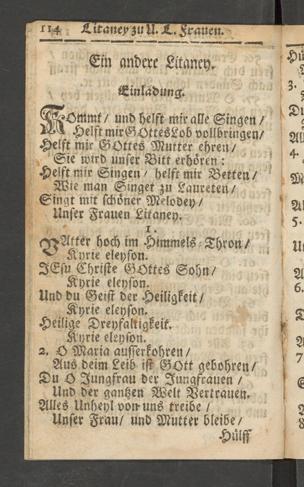 114 Litaney zu U. L. Frauen.
Ein andere Litaney.
Einladung.
KOmmt/ und helft mir alle Singen/
Helft mir GOttes Lob vollbringen/
Helft mir GOttes Mutter ehren/
Sie wird unser Bitt erhören:
Helft mir Singen/ helft mir Betten/
Wie man Singet zu Laureten/
Singt mit schöner Melodey/
Unser Frauen Litaney.
1.
VAtter hoch im Himmels-Thron/
Kyrie eleyson.
JEsu Christe GOttes Sohn/
Kyrie eleyson.
Und du Geist der Heiligkeit/
Kyrie eleyson.
Heilige Dreyfaltigkeit.
Kyrie eleyson.
2. O Maria ausserkohren/
Aus deim Leib ist GOtt gebohren/
Du O Jungfrau der Jungfrauen/
Und der gantzen Welt Vertrauen.
Alles Unheyl von uns treibe/
Unser Frau/ und Mutter bleibe/
Hülff